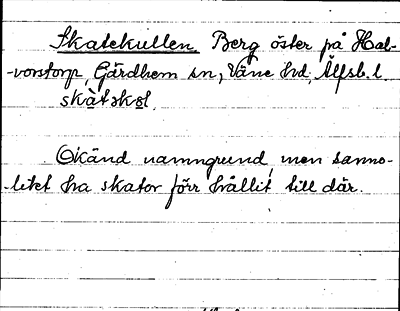 Skatekullen Berg öster på Hal-
-vorstorp, Gärdhem sn, Väne hd, Älfsb. l.
skàtəkɵl.
Okänd namngrund, men sanno-
-likt ha skator förr hållit till där.